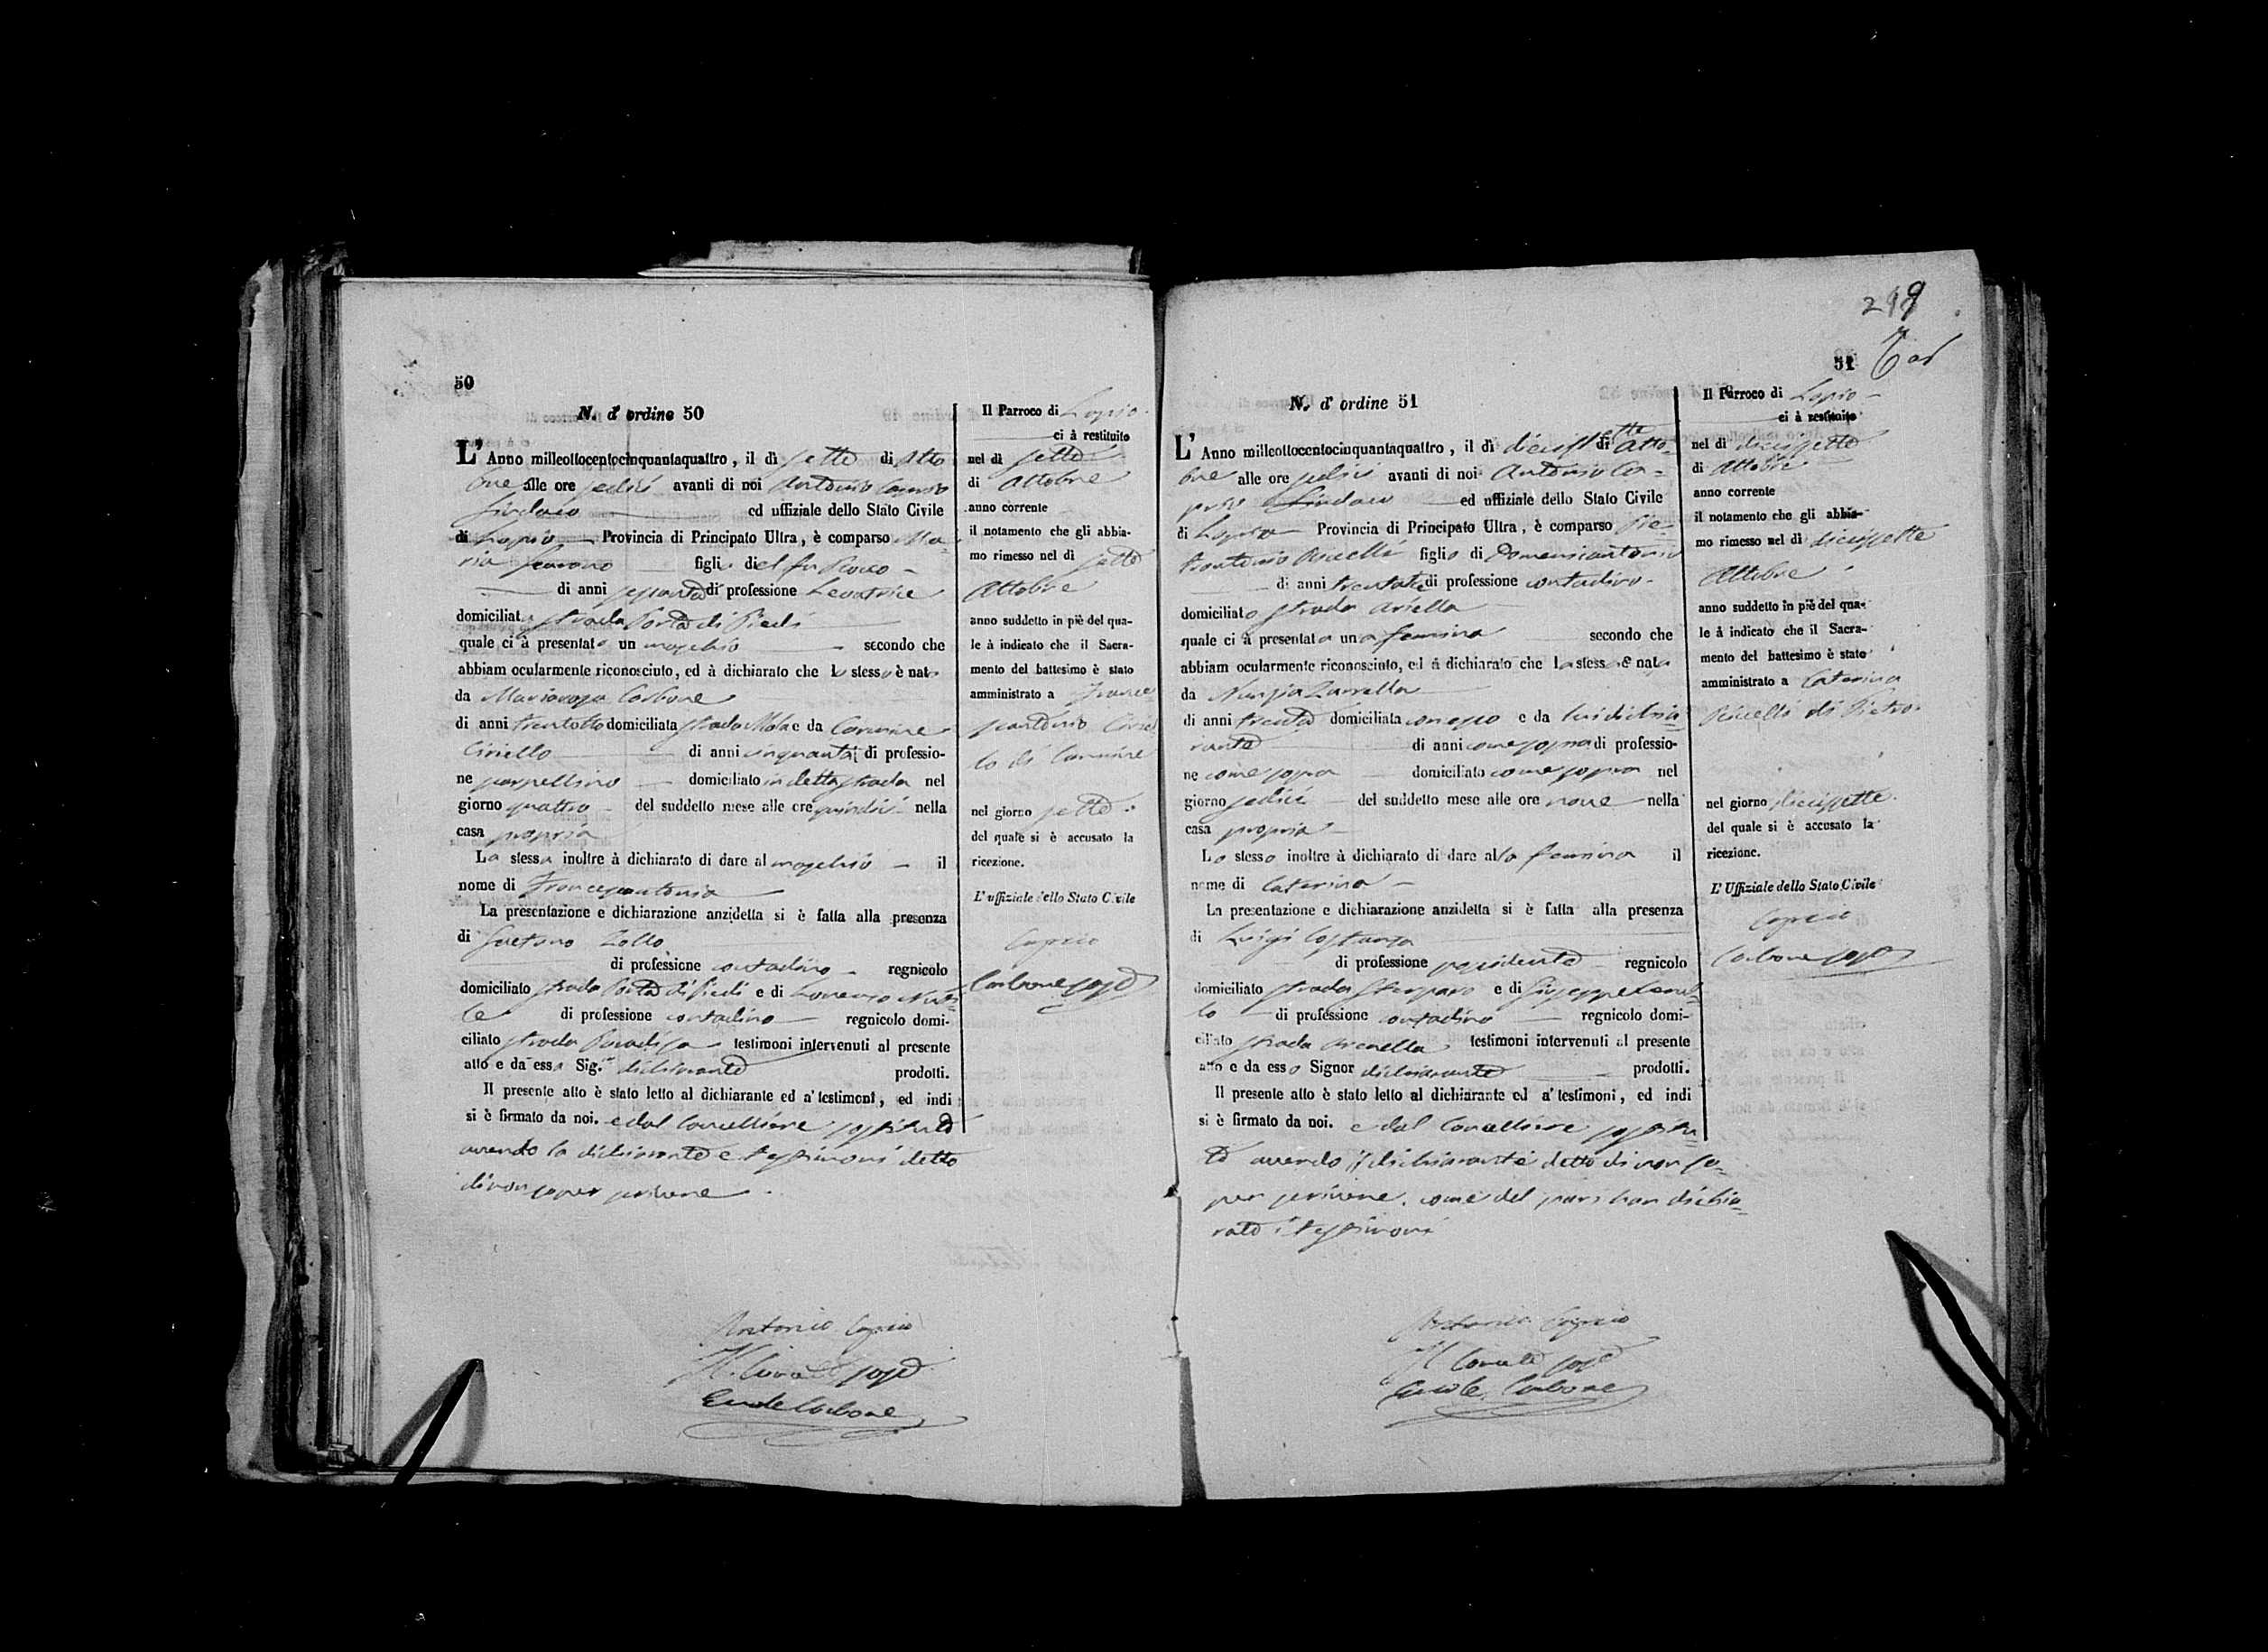 50
N. d' ordine 50
L' Anno milleottocentocinquantaquattro, il dì sette di Otto
bre alle ore sedici avanti di noi Antonio Caprio
Sindaco ed uffiziale dello Stato Civile
di Lapio Provincia di Principato Ultra, è comparso Ma-
ria figlia del fu Rocco
di anni sessanta di professione Levatrice
domiciliata strada Porta di Piedi
quale ci à presentato un maschio secondo che
abbiam ocularmente riconosciuto, ed à dichiarato che lo stesso è nato
da Mariarosa Carbone
di anni trentotto domiciliata strada Mola e da Carmine
Ciriello di anni cinquanta di professio-
ne scarpellino domiciliato in detta strada nel
giorno quattro del suddetto mese alle ore quindici nella
casa propria
La stessa inoltre à dichiarato di dare al maschio il
nome di Francescantonio
La presentazione e dichiarazione anzidetta si è fatta alla presenza
di Gaetano Zollo
di professione contadino regnicolo
domiciliato strada Porta di Piedi e di Lorenzo
di professione contadino regnicolo domi-
ciliato strada Paradiso testimoni intervenuti al presente
atto e da essa Sig.ra dichiarante prodotti.
Il presente atto è stato letto al dichiarante ed a' testimoni, ed indi
si è firmato da noi. e dal Cancelliere sostituto
avendo la dichiarante e testimoni detto
di non saper scrivere.
Antonio Caprio
Il Cancell sost
Ercole Carbone
Il Parroco di Lapio
ci à restituito
nel dì sette
di Ottobre
anno corrente
il notamento che gli abbia-
mo rimesso nel dì sette
Ottobre
anno suddetto in piè del qua-
le à indicato che il Sacra-
mento del battesimo è stato
amministrato a France
scantonio Ciriel
lo di Carmine
nel giorno sette
del quale si è accusato la
ricezione.
L'uffiziale dello Stato Civile
Caprio
Carbone sost
51
N. d' ordine 51
L' Anno millecottocentocinquantaquattro, il dì diciassette di Otto-
bre alle ore sedici avanti di noi Antonio Ca-
prio Sindaco ed uffiziale dello Stato Civile
di Lapio Provincia di Principato Ultra, è comparso Pie-
trantonio figlio di Domenicantonio
di anni trentatre di professione contadino
domiciliato strada Ariella
quale ci à presentata una femina secondo che
abbiam ocularmente riconosciuto, ed à dichiarato che la stessa è nata
da Nunzia Zarrella
di anni trenta domiciliata con esso e da lui dichia-
rante di anni come sopra di professio-
ne come sopra domiciliato come sopra nel
giorno sedici del suddetto mese alle ore nove nella
casa propria
Lo stesso inoltre à dichiarato di dare alla femina il
nome di Caterina
La presentazione e dichiarazione anzidetta si è fatta alla presenza
di Luigi Costanza
di professione possidente regnicolo
domiciliato strada e di Giuseppe
lo di professione contadino regnicolo domi-
ciliato strada testimoni intervenuti al presente
atto e da esso Signor dichiarante prodotti.
Il presente atto è stato letto al dichiarante ed a' testimoni, ed indi
si è firmato da noi. e dal Cancelliere sostitu-
to avendo il dichiarante detto di non sa-
per scrivere. come del pari han dichia-
rato i testimoni
Antonio Caprio
Il Cancell sost
Ercole Carbone
Il Parroco di Lapio
ci à restituito
nel dì diciassette
di Ottobre
anno corrente
il notamento che gli abbia-
mo rimesso nel dì diciassette
Ottobre
anno suddetto in piè del qua-
le à indicato che il Sacra-
mento del battesimo è stato
amministrato a Caterina
di Pietro
nel giorno diciassette
del quale si è accusato la
ricezione.
L'Uffiziale dello Stato Civile
Caprio
Carbone sost